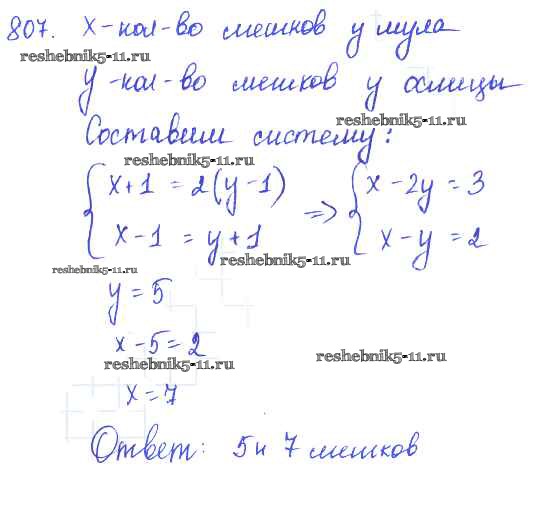 807. x - кол-во мешков у мула
reshebnik5-11.ru
y - кол-во мешков у ослицы
reshebnik5-11.ru
Составим систему:
reshebnik5-11.ru
{ x+1 = 2(y-1) => { x - 2y = 3
x - 1 = y+1 x - y = 2
reshebnik5-11.ru
reshebnik5-11.ru
y = 5
x - 5 = 2
reshebnik5-11.ru
reshebnik5-11.ru
x = 7
Ответ: 5 и 7 мешков